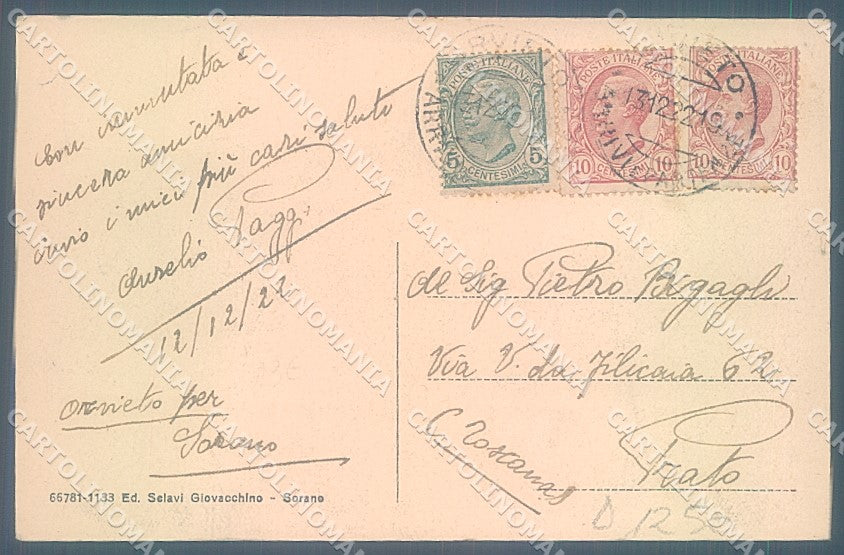 Con immutata e
sincera amicizia
invio i miei più cari saluti
Aurelio Saggi
12/12/22
Orvieto per
Sorano
66781-1133 Ed. Selavi Giovacchino - Sorano
POSTE ITALIANE
5 5
CENTESIMI
POSTE ITALIANE
10 10
CENTESIMI
ITALIANE
10 10
CENTESIMI
ORVIETO
13.12.22.19
ARRIVI
al Sig Pietro Bigagli
Via V. da Filicaia 62
Prato
(Toscana)
CARTOLINOMANIA